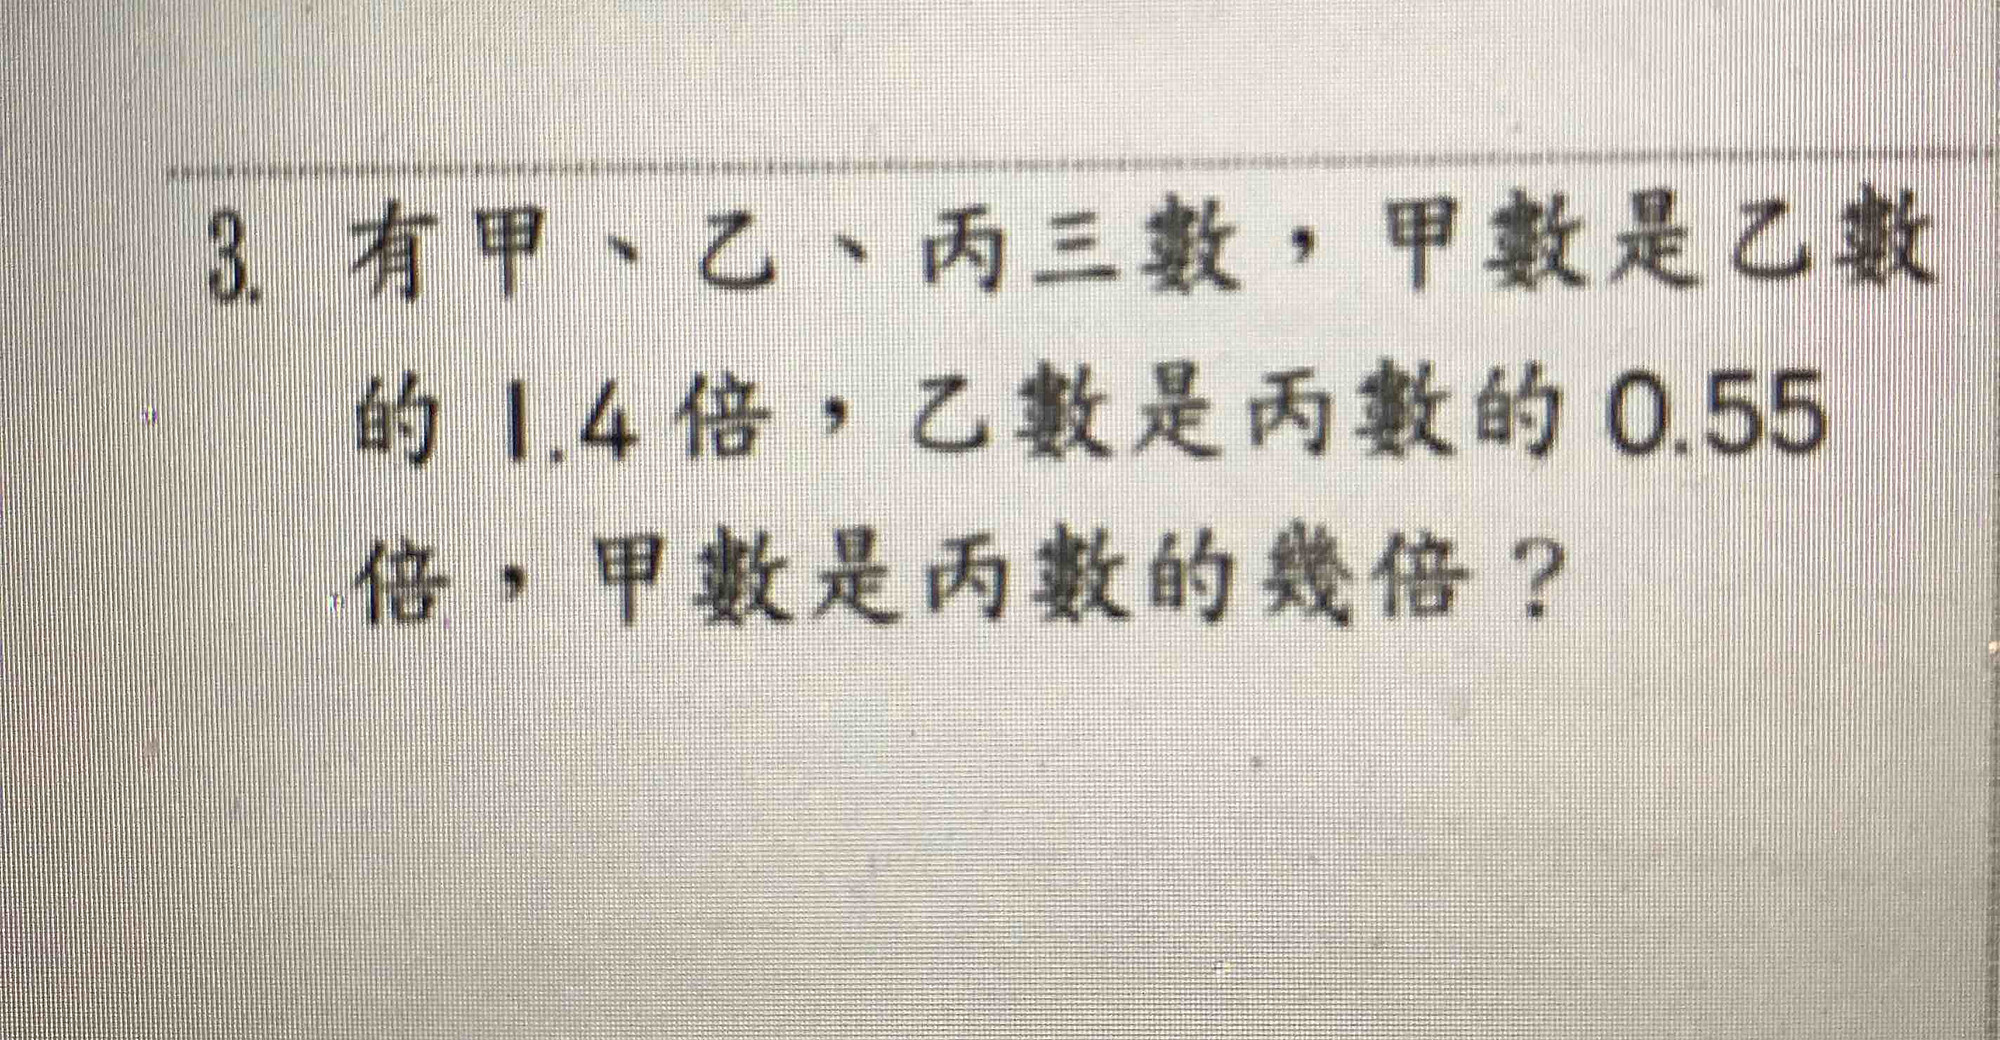 3. 有甲、乙、丙三數，甲數是乙數
的 1.4 倍，乙數是丙數的 0.55
倍，甲數是丙數的幾倍？